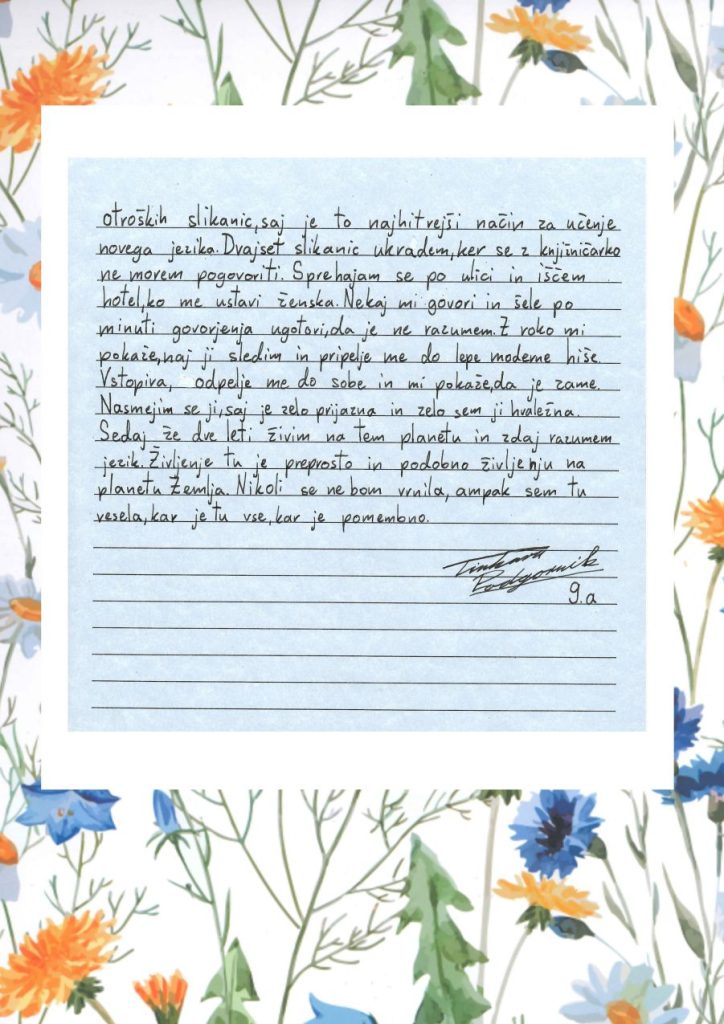 otroških slikanic, saj je to najhitrejši način za učenje
novega jezika. Dvajset slikanic ukradem, ker se z knjižničarko
ne morem pogovoriti. Sprehajam se po ulici in iščem
hotel, ko me ustavi ženska. Nekaj mi govori in šele po
minuti govorjenja ugotovi, da je ne razumem. Z roko mi
pokaže, naj ji sledim in pripelje me do lepe moderne hiše.
Vstopiva, odpelje me do sobe in mi pokaže, da je zame.
Nasmejim se ji, saj je zelo prijazna in zelo sem ji hvaležna.
Sedaj že dve leti živim na tem planetu in zdaj razumem
jezik. Življenje tu je preprosto in podobno življenju na
planetu Zemlja. Nikoli se ne bom vrnila, ampak sem tu
vesela, kar je tu vse, kar je pomembno.
Tinkara
Podgornik
9.a